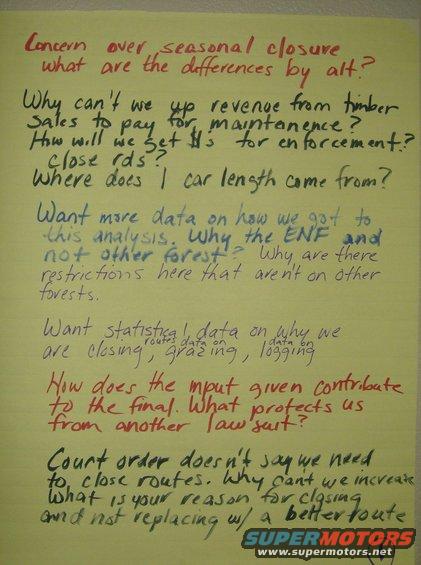 Concern over seasonal closure
what are the differences by alt?
Why can't we up revenue from timber
sales to pay for maintenence?
How will we get $'s for enforcement?
close rds?
Where does 1 car length come from?
Want more data on how we got to
this analysis. Why the ENF and
not other forest? Why are there
restrictions here that aren't on other
forests.
Want statistical data on why we
are closing routes, data on grazing, data on logging
How does the input given contribute
to the final. What protects us
from another lawsuit?
Court order doesn't say we need
to close routes. Why cant we increase
What is your reason for closing
and not replacing w/ a better route
SUPERMOTORS
www.supermotors.net